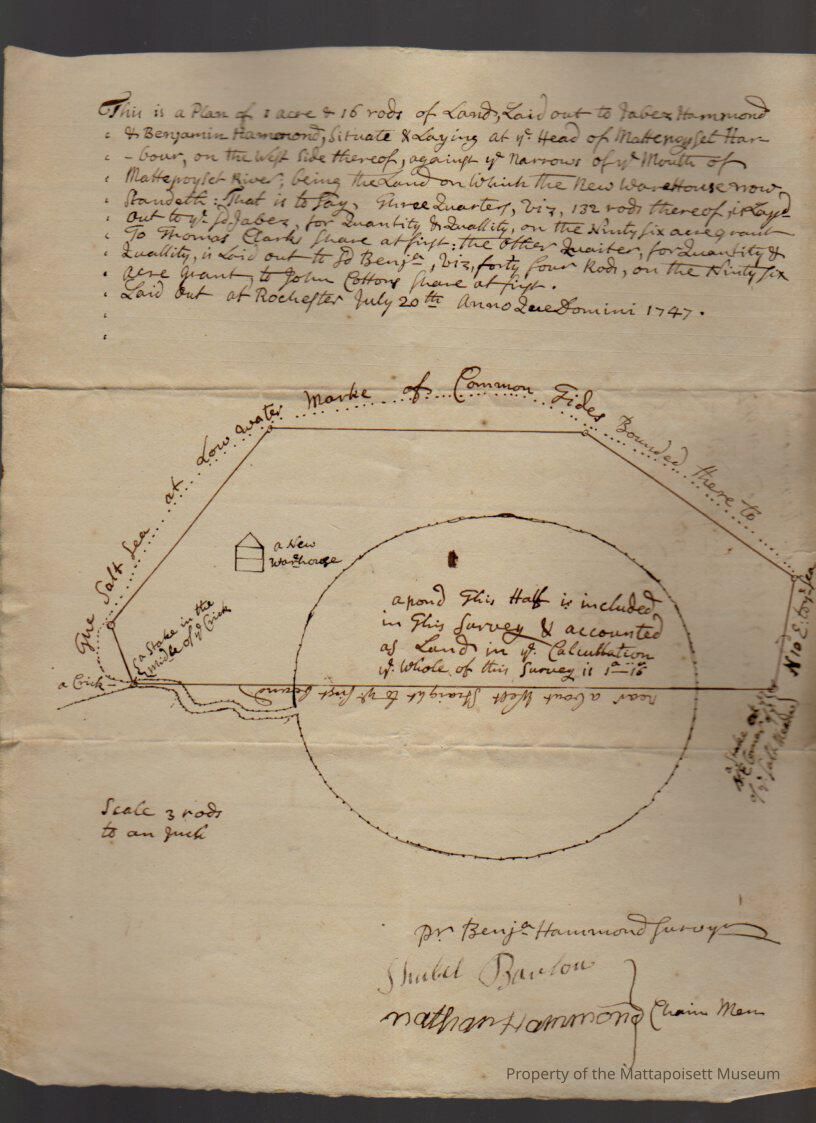 This is a Plan of 1 acre & 16 rods of Land, Laid out to Jabez Hammond
& Benjamin Hammond, Situate & Laying at yͤ Head of Mattepoyset Har-
-bour, on the West Side thereof, against yͤ Narrows of yͤ Mouth of
Mattepoyset River, being the Land on Which the New WareHouse now
Standeth: That is to Say, Three Quarters, Viz, 132 rods thereof, is Layd
out to yͤ sd Jabez, for Quantity & Quallity, on the Ninty six acre grant
To Thomas Clarks Share at first: the other Quarter, for Quantity &
Quallity, is Laid out to sd Benjᵃ, Viz, forty four Rods, on the Ninty six
acre grant, to John Cottons Share at first.
Laid out at Rochester July 20th Anno Domini 1747.
The Salt Sea at Low water Marke of Common Tides Bounded there to
a New
Warehouse
a pond This Half is included
in This Survey & accounted
as Land in yͤ Calcullation
yͤ Whole of this Survey is 1ᵃ 16
a Stake in the
middle of yͤ Crick
a Crick
near about West Straight to yͤ first bound
N 10 E. to yͤ Sea
a Stake at
Scale 3 rods
to an Inch
pr Benjᵃ Hammond Survey
Shubel Barlow
Nathan Hammond
Chain Men
Property of the Mattapoisett Museum